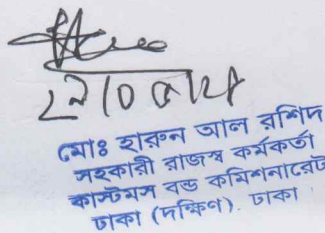 মোঃ হারুন আল রশিদ
সহকারী রাজস্ব কর্মকর্তা
কাস্টমস বন্ড কমিশনারেট
ঢাকা (দক্ষিণ). ঢাকা